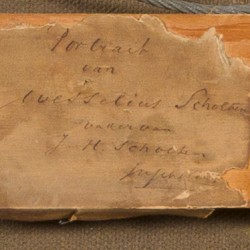 Portrait
van
Wesselius Scholten
vader van
J. H. Scholten